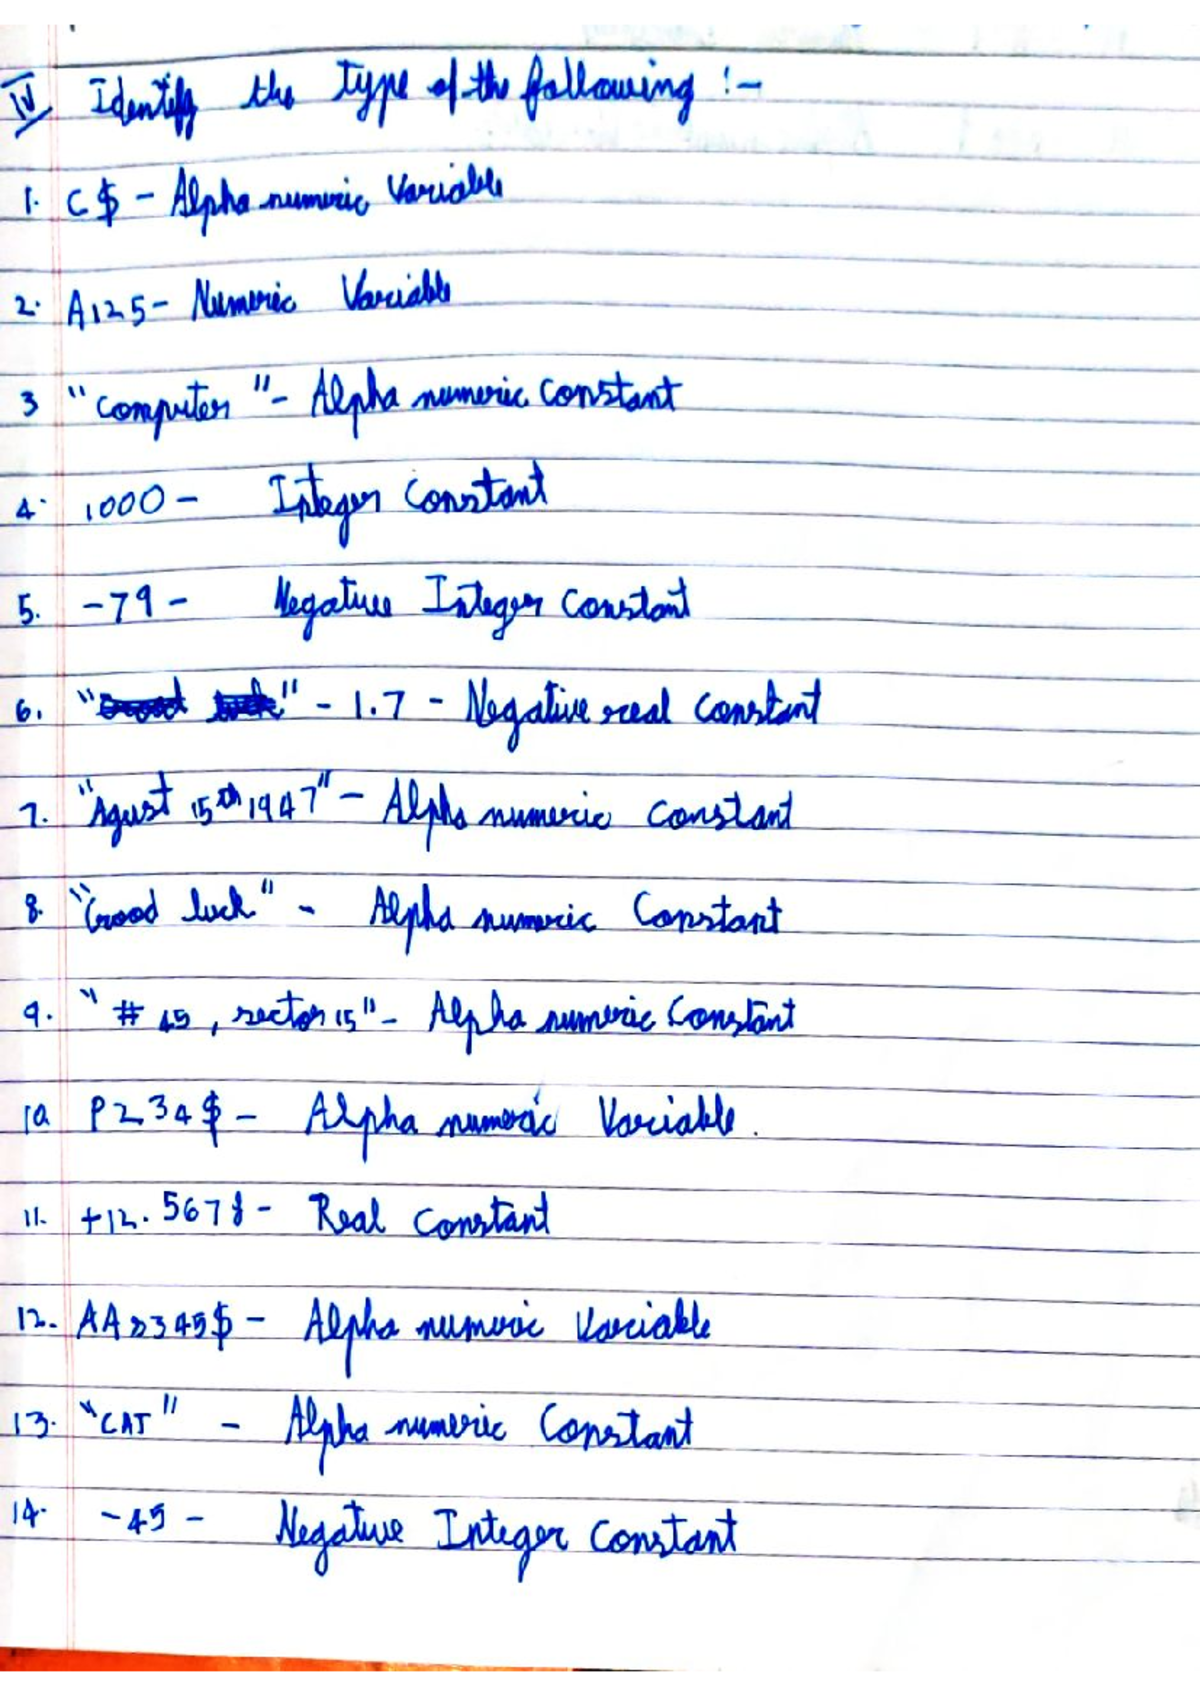 IV Identify the type of the following :-
1. C$ - Alpha numeric Variable
2. A125 - Numeric Variable
3 "Computer" - Alpha numeric Constant
4. 1000 - Integer Constant
5. -79 - Negative Integer Constant
6. " " - 1.7 - Negative real Constant
7. "Agust 15th 1947" - Alpha numeric Constant
8. "Good luck" - Alpha numeric Constant
9. "# 45, sector 15" - Alpha numeric Constant
10 P234$ - Alpha numeric Variable.
11. +12.5678 - Real Constant
12. AA2345$ - Alpha numeric Variable
13. "CAT" - Alpha numeric Constant
14. -45 - Negative Integer Constant